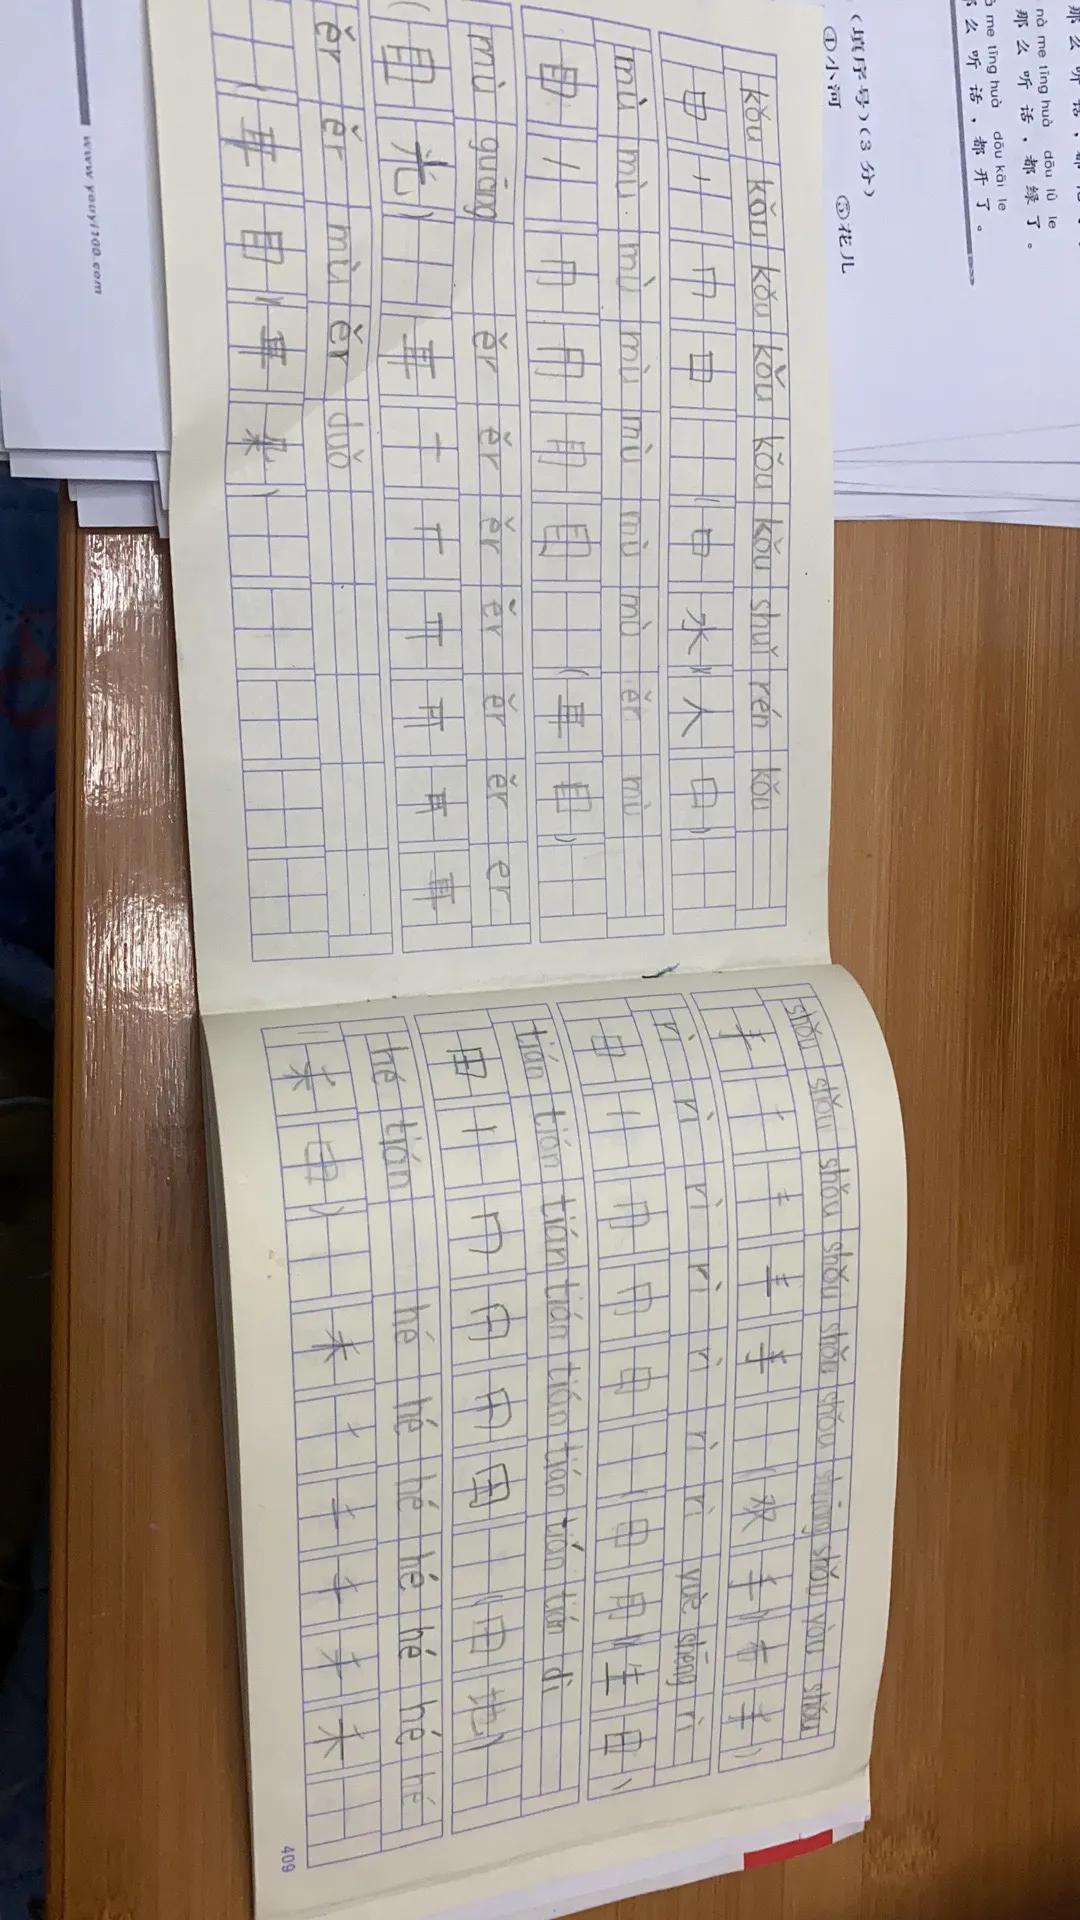 那么听话,都
nà me tīng huà dōu lǜ le
那么听话,都绿了。
me tīng huà dōu kāi le
么听话,都开了。
(填序号)(3分)
①小河 ⑤花儿
www.youyi100.com
kǒu kǒu kǒu kǒu kǒu kǒu shuǐ rén kǒu
口 丨 冂 口 (口水)(人口)
mù mù mù mù mù mù mù ěr mù
目 丨 冂 月 月 目 (耳目)
mù guāng ěr ěr ěr ěr ěr ěr er
(目光) 耳 一 丅 丌 耳 耳
ěr ěr mù ěr duǒ
耳 (耳目)(耳朵)
shǒu shǒu shǒu shǒu shǒu shǒu shuāng shǒu yòu shǒu
手 手 (双手)(右手)
rì rì rì rì rì rì rì yuè shēng rì
日 丨 冂 日 日 (日月)(生日)
tián tián tián tián tián tián tián tián dì
田 丨 冂 田 (田地)
hé tián hé hé hé hé hé hé hé
(禾田) 禾 禾
409